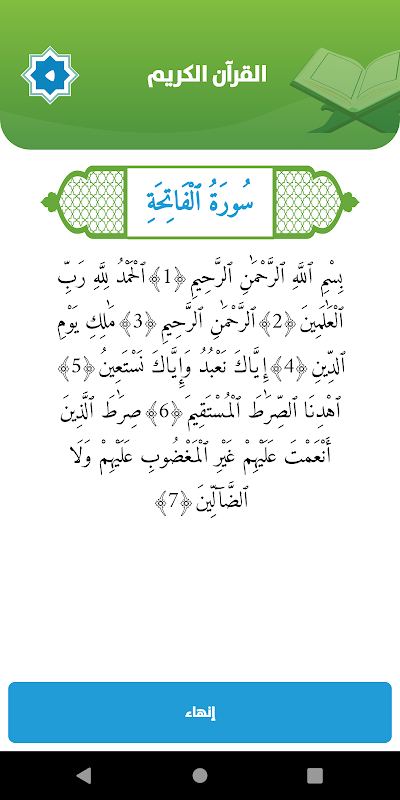 القرآن الكريم
سُورَةُ ٱلْفَاتِحَةِ
بِسْمِ ٱللَّهِ ٱلرَّحْمَٰنِ ٱلرَّحِيمِ ﴿1﴾ ٱلْحَمْدُ لِلَّهِ رَبِّ
ٱلْعَٰلَمِينَ ﴿2﴾ ٱلرَّحْمَٰنِ ٱلرَّحِيمِ ﴿3﴾ مَٰلِكِ يَوْمِ
ٱلدِّينِ ﴿4﴾ إِيَّاكَ نَعْبُدُ وَإِيَّاكَ نَسْتَعِينُ ﴿5﴾
ٱهْدِنَا ٱلصِّرَٰطَ ٱلْمُسْتَقِيمَ ﴿6﴾ صِرَٰطَ ٱلَّذِينَ
أَنْعَمْتَ عَلَيْهِمْ غَيْرِ ٱلْمَغْضُوبِ عَلَيْهِمْ وَلَا
ٱلضَّآلِّينَ ﴿7﴾
إنهاء